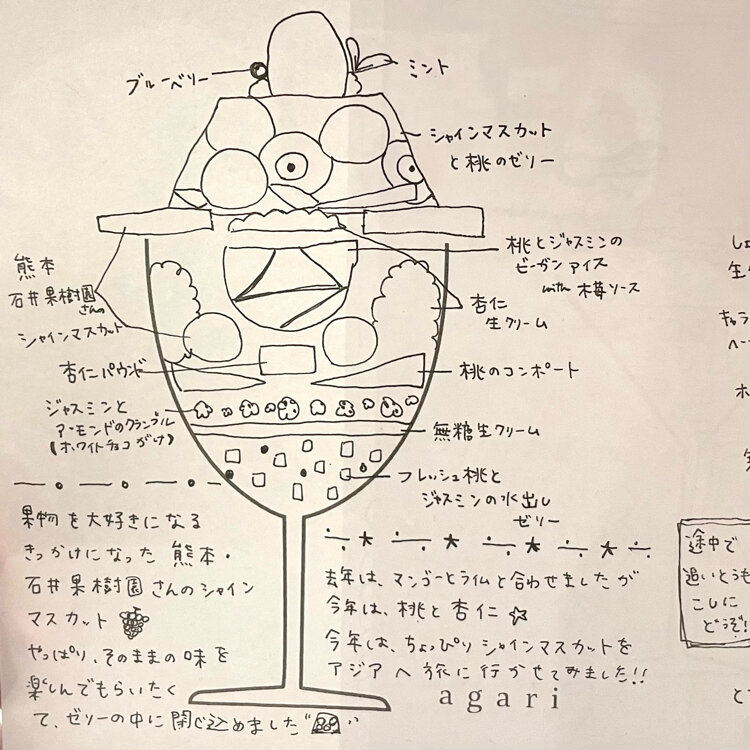 ブルーベリー
ミント
シャインマスカット
と桃のゼリー
熊本
石井果樹園
さんの
シャインマスカット
桃とジャスミンの
ビーガンアイス
with 木苺ソース
杏仁
生クリーム
杏仁パウンド
桃のコンポート
ジャスミンと
アーモンドのクランブル
(ホワイトチョコがけ)
無糖生クリーム
フレッシュ桃と
ジャスミンの水出し
ゼリー
果物を大好きになる
きっかけになった 熊本・
石井果樹園さんのシャイン
マスカット
やっぱり、そのままの味を
楽しんでもらいたく
て、ゼリーの中に閉じ込めました
去年は、マンゴーとライムと合わせましたが
今年は、桃と杏仁☆
今年は、ちょっぴりシャインマスカットを
アジアへ旅に行かせてみました!!
agari
生
キャラ
途中で
追いとうも
こしに
どうぞ!